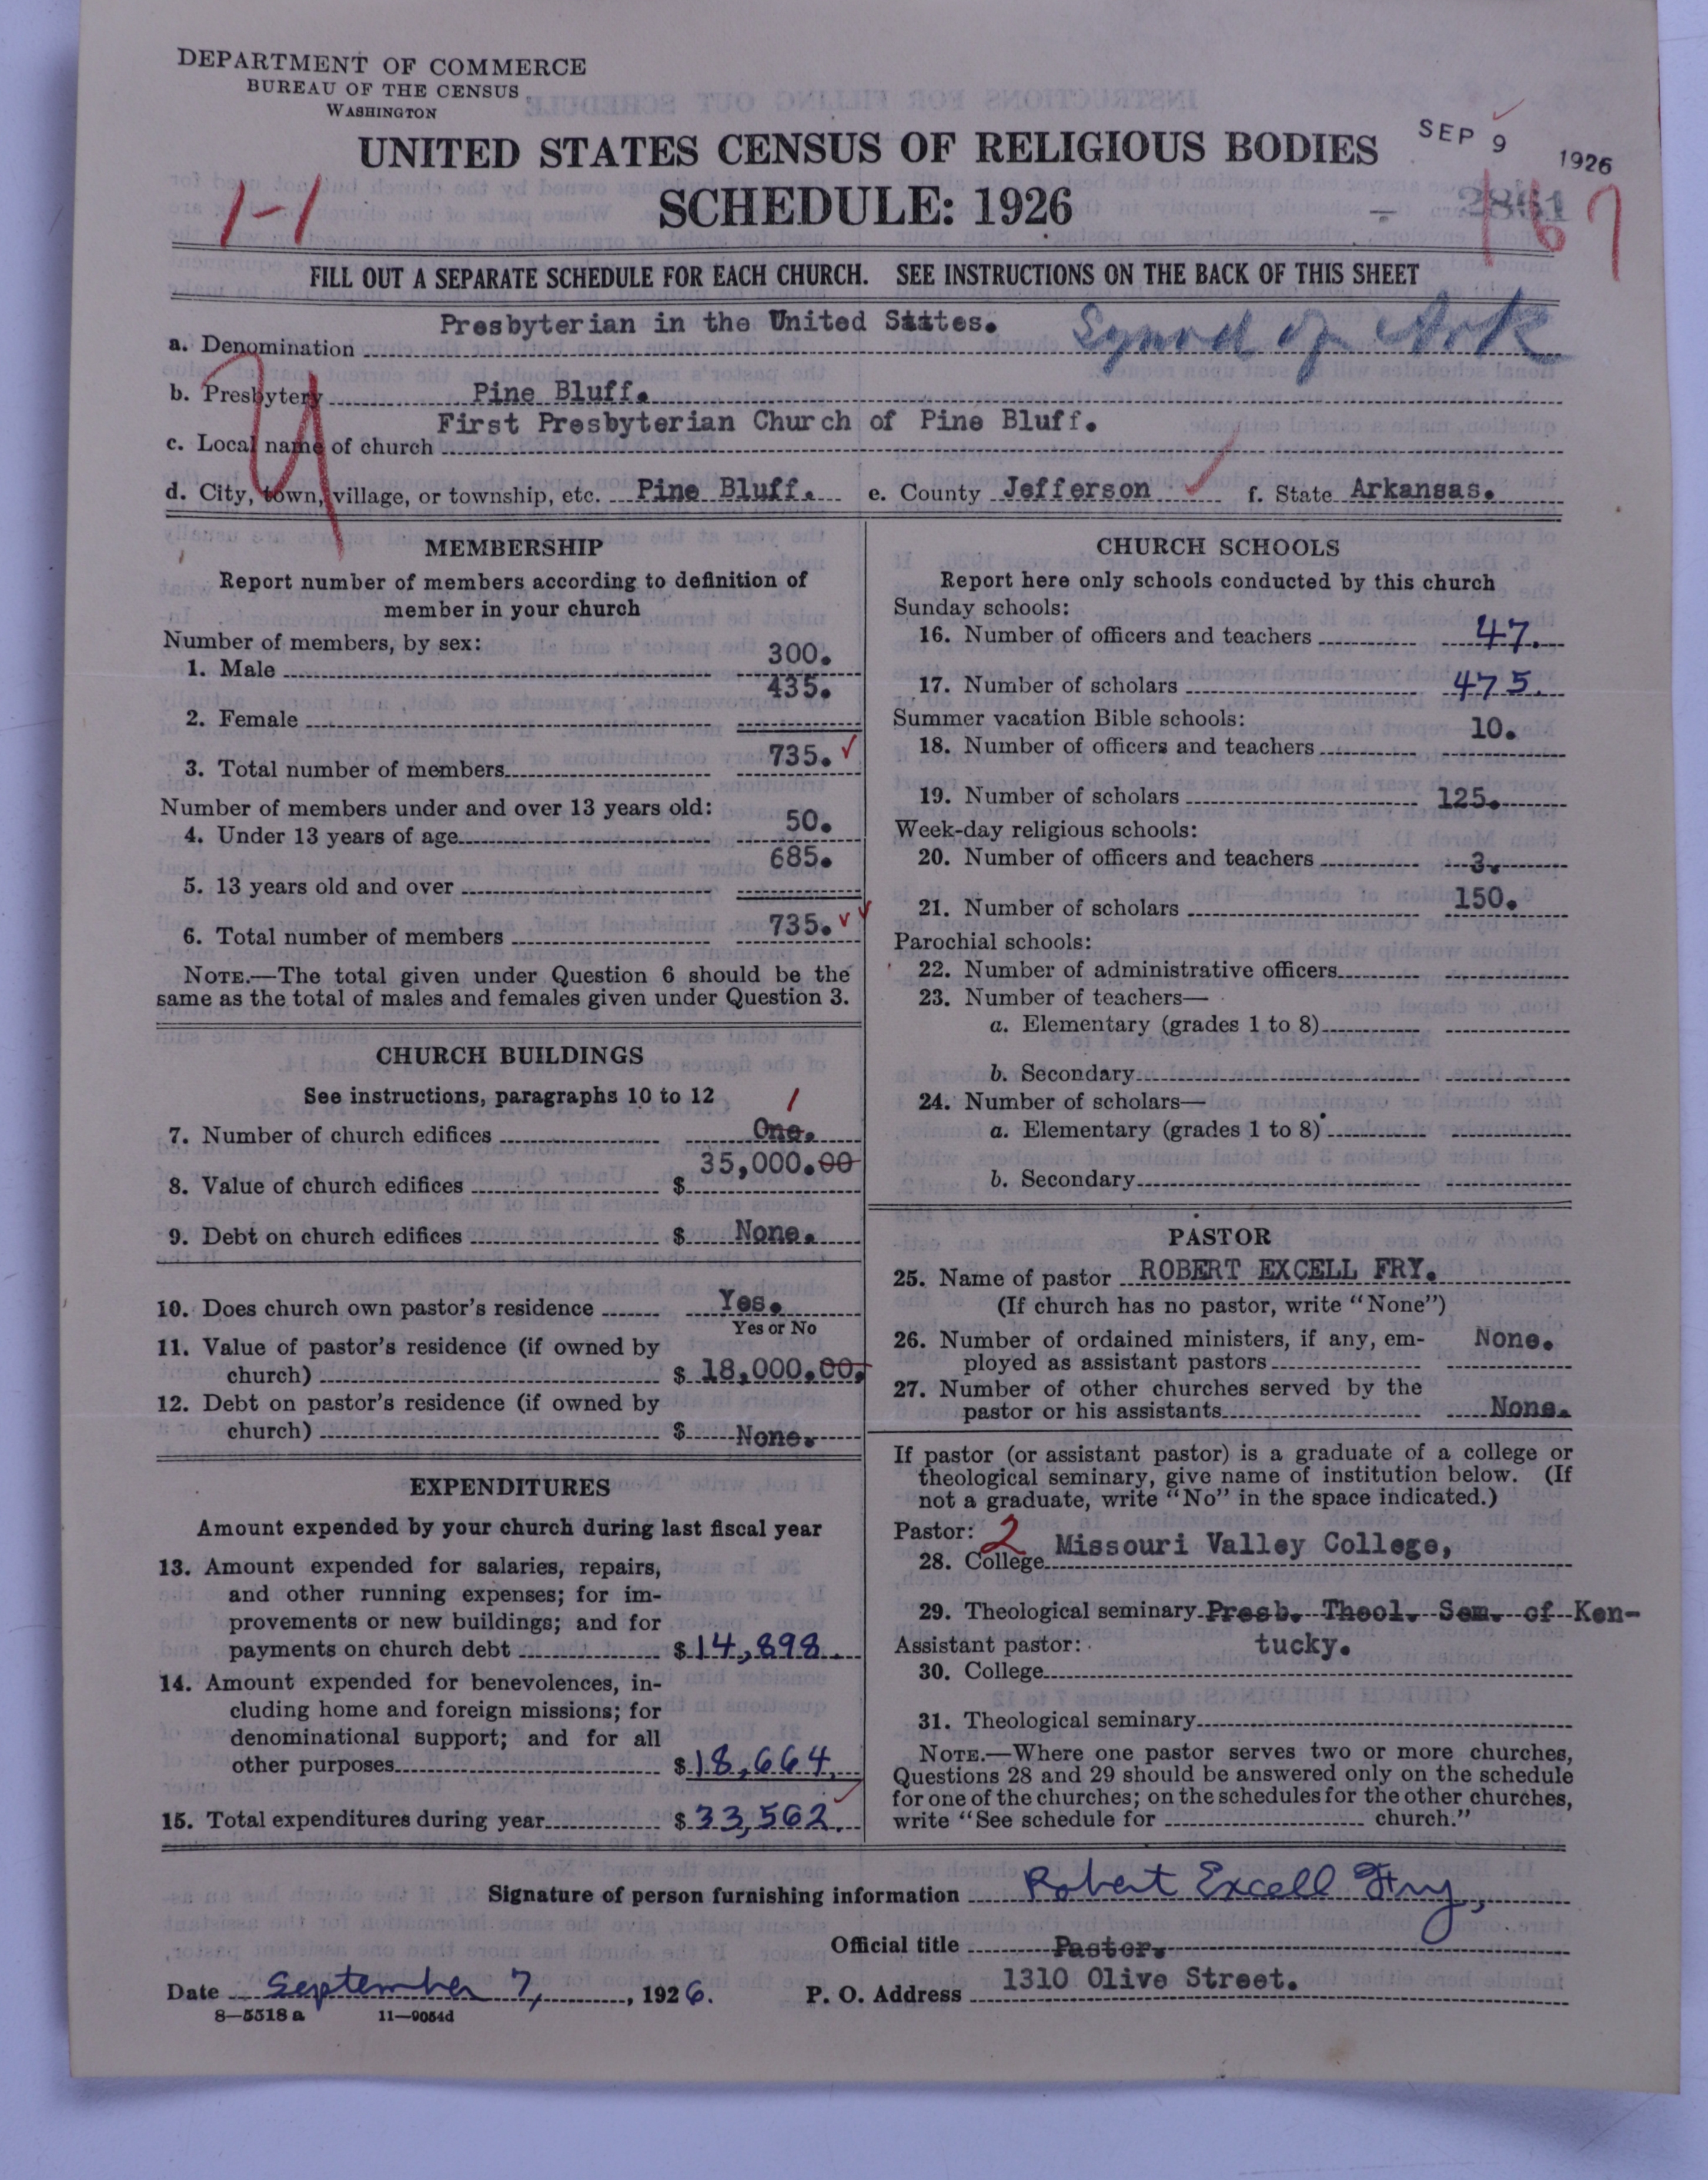 DEPARTMENT OF COMMERCE
BUREAU OF THE CENSUS
WASHINGTON
UNITED STATES CENSUS OF RELIGIOUS BODIES
SCHEDULE: 1926
SEP 9 1926
1-1
167
FILL OUT A SEPARATE SCHEDULE FOR EACH CHURCH. SEE INSTRUCTIONS ON THE BACK OF THIS SHEET
a. Denomination Presbyterian in the United States. Synod of Ark
b. Presbytery Pine Bluff.
c. Local name of church First Presbyterian Church of Pine Bluff.
d. City, town, village, or township, etc. Pine Bluff. e. County Jefferson f. State Arkansas.
MEMBERSHIP
Report number of members according to definition of
member in your church
Number of members, by sex:
1. Male 300.
2. Female 435.
3. Total number of members 735.
Number of members under and over 13 years old:
4. Under 13 years of age 50.
5. 13 years old and over 685.
6. Total number of members 735.
NOTE.—The total given under Question 6 should be the
same as the total of males and females given under Question 3.
CHURCH BUILDINGS
See instructions, paragraphs 10 to 12
1
7. Number of church edifices One.
8. Value of church edifices $ 35,000.00
9. Debt on church edifices $ None.
10. Does church own pastor's residence Yes.
Yes or No
11. Value of pastor's residence (if owned by
church) $ 18,000.00.
12. Debt on pastor's residence (if owned by
church) $ None.
EXPENDITURES
Amount expended by your church during last fiscal year
13. Amount expended for salaries, repairs,
and other running expenses; for im-
provements or new buildings; and for
payments on church debt $ 14,898.
14. Amount expended for benevolences, in-
cluding home and foreign missions; for
denominational support; and for all
other purposes $ 18,664.
15. Total expenditures during year $ 33,562.
CHURCH SCHOOLS
Report here only schools conducted by this church
Sunday schools:
16. Number of officers and teachers 47.
17. Number of scholars 475.
Summer vacation Bible schools:
18. Number of officers and teachers 10.
19. Number of scholars 125.
Week-day religious schools:
20. Number of officers and teachers 3.
21. Number of scholars 150.
Parochial schools:
22. Number of administrative officers
23. Number of teachers—
a. Elementary (grades 1 to 8)
b. Secondary
24. Number of scholars—
a. Elementary (grades 1 to 8)
b. Secondary
PASTOR
25. Name of pastor ROBERT EXCELL FRY.
(If church has no pastor, write "None")
26. Number of ordained ministers, if any, em-
ployed as assistant pastors None.
27. Number of other churches served by the
pastor or his assistants None.
If pastor (or assistant pastor) is a graduate of a college or
theological seminary, give name of institution below. (If
not a graduate, write "No" in the space indicated.)
Pastor: 2
28. College Missouri Valley College,
29. Theological seminary Presb. Theol. Sem. of Ken-
tucky.
Assistant pastor:
30. College
31. Theological seminary
NOTE.—Where one pastor serves two or more churches,
Questions 28 and 29 should be answered only on the schedule
for one of the churches; on the schedules for the other churches,
write "See schedule for church."
Signature of person furnishing information Robert Excell Fry,
Official title Pastor.
Date September 7, 1926. P. O. Address 1310 Olive Street.
8—5518 a 11—9054d